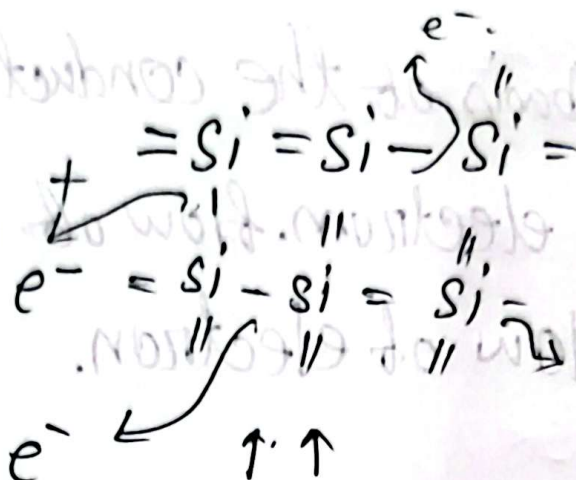 e⁻.
= Si = Si — Si =
+
e⁻ = Si - Si = Si -
e⁻